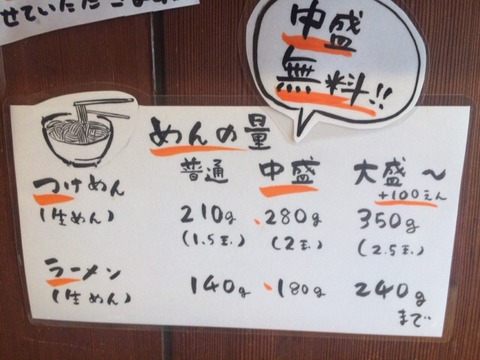 中盛
無料!!
めんの量
普通 中盛 大盛〜
+100えん
つけめん 210g 280g 350g
(生めん) (1.5玉.) (2玉.) (2.5玉.)
ラーメン 140g 180g 240g
(生めん) まで